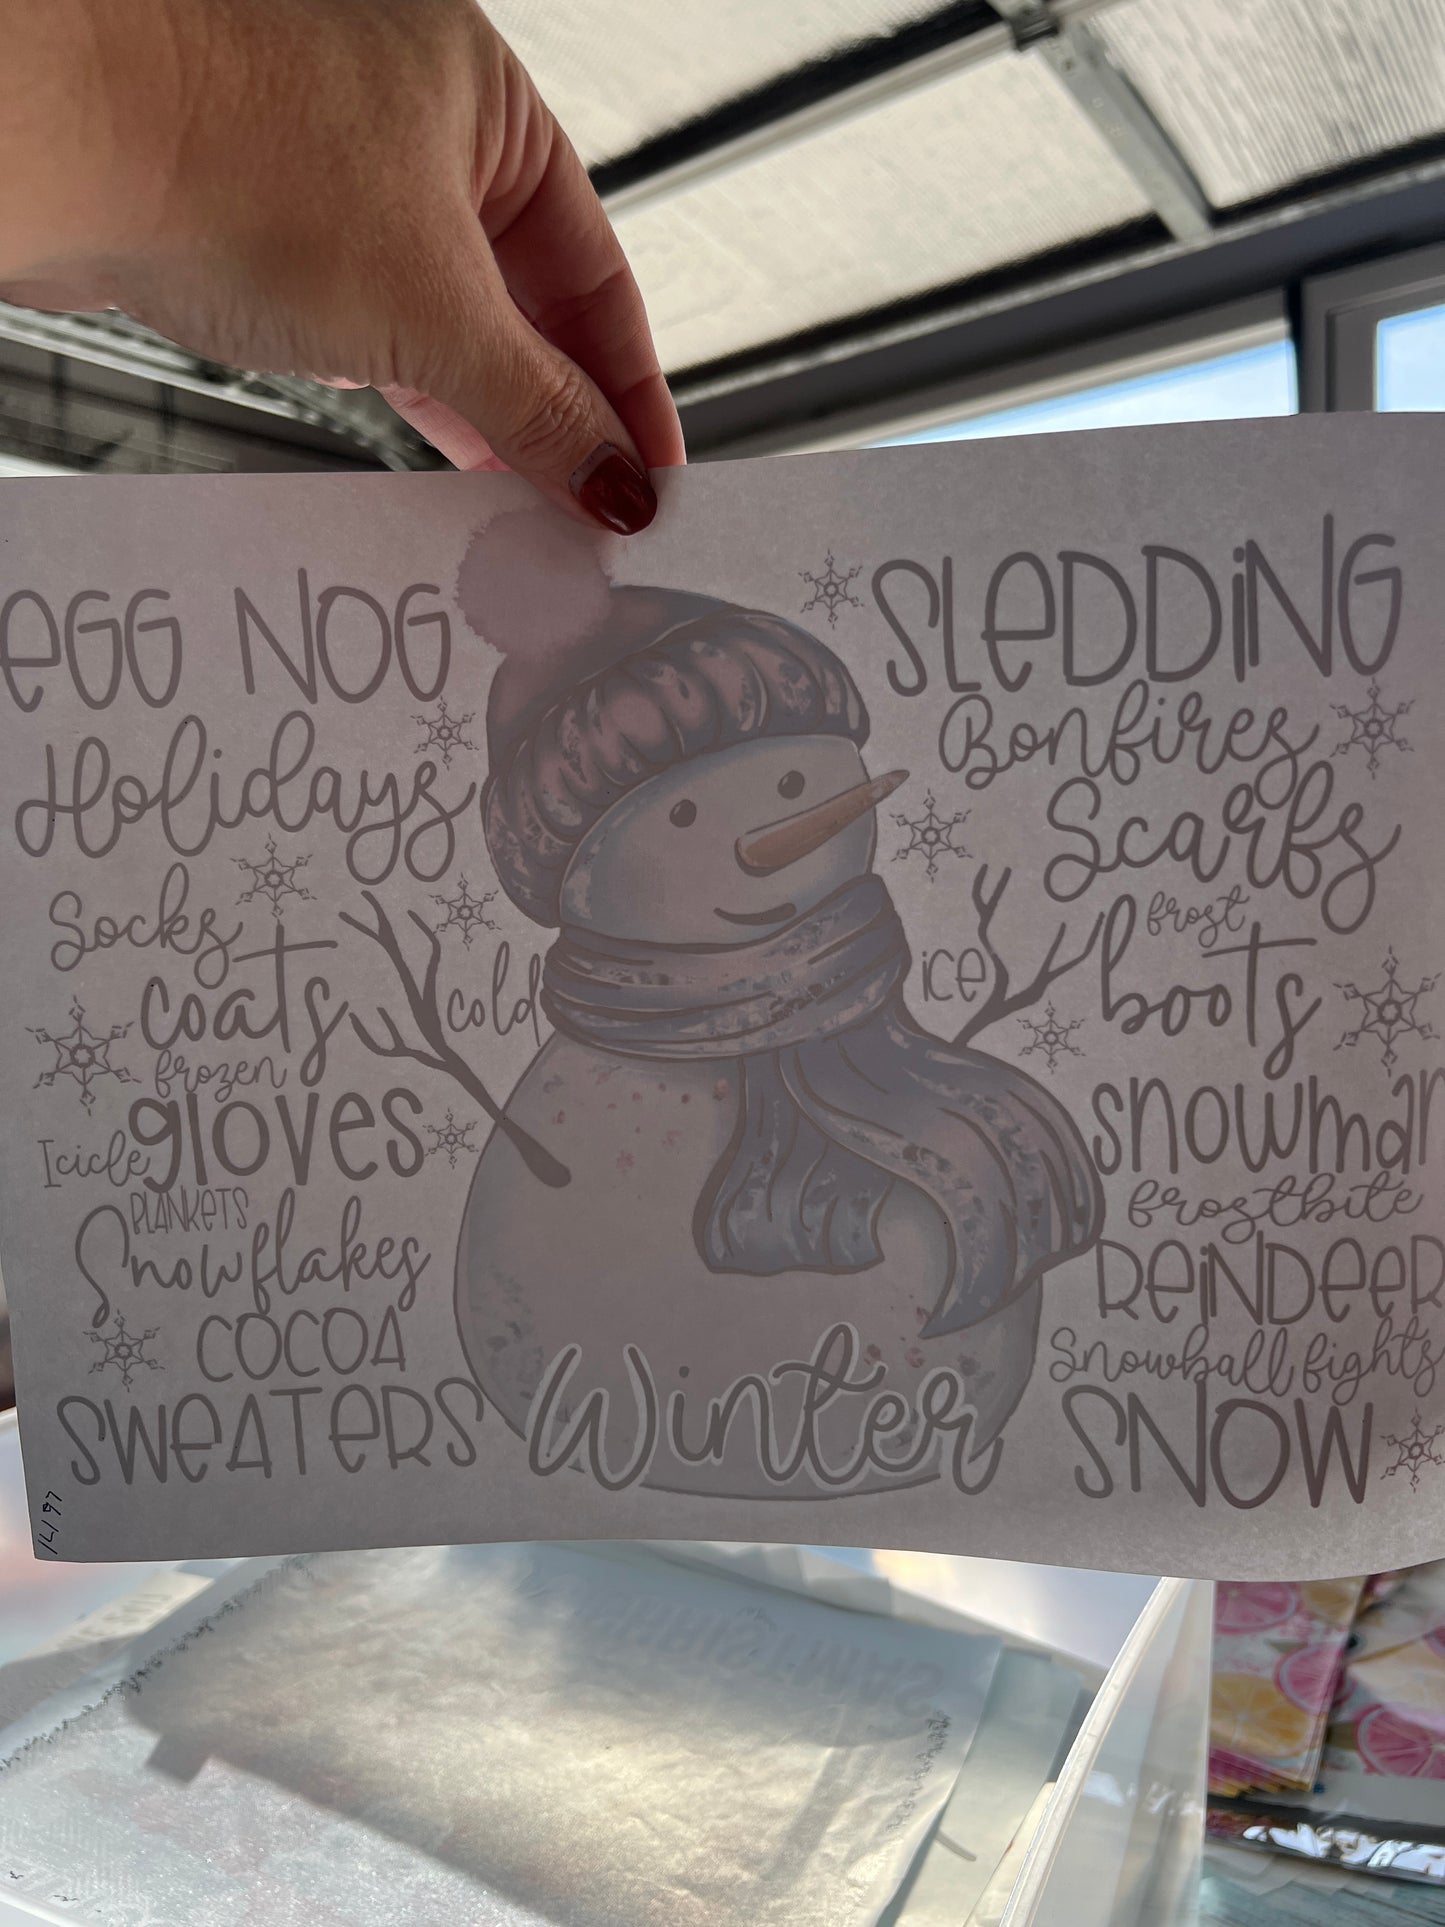 eGG NOG
Holidays
Socks
coats
cold
frozen
gloves
Icicle
BLANKETS
Snowflakes
COCOA
SWEATERS
Winter
SLeDDiNG
Bonfires
Scarfs
frost
ice
boots
snowman
frostbite
ReiNDeeR
Snowball fights
SNOW